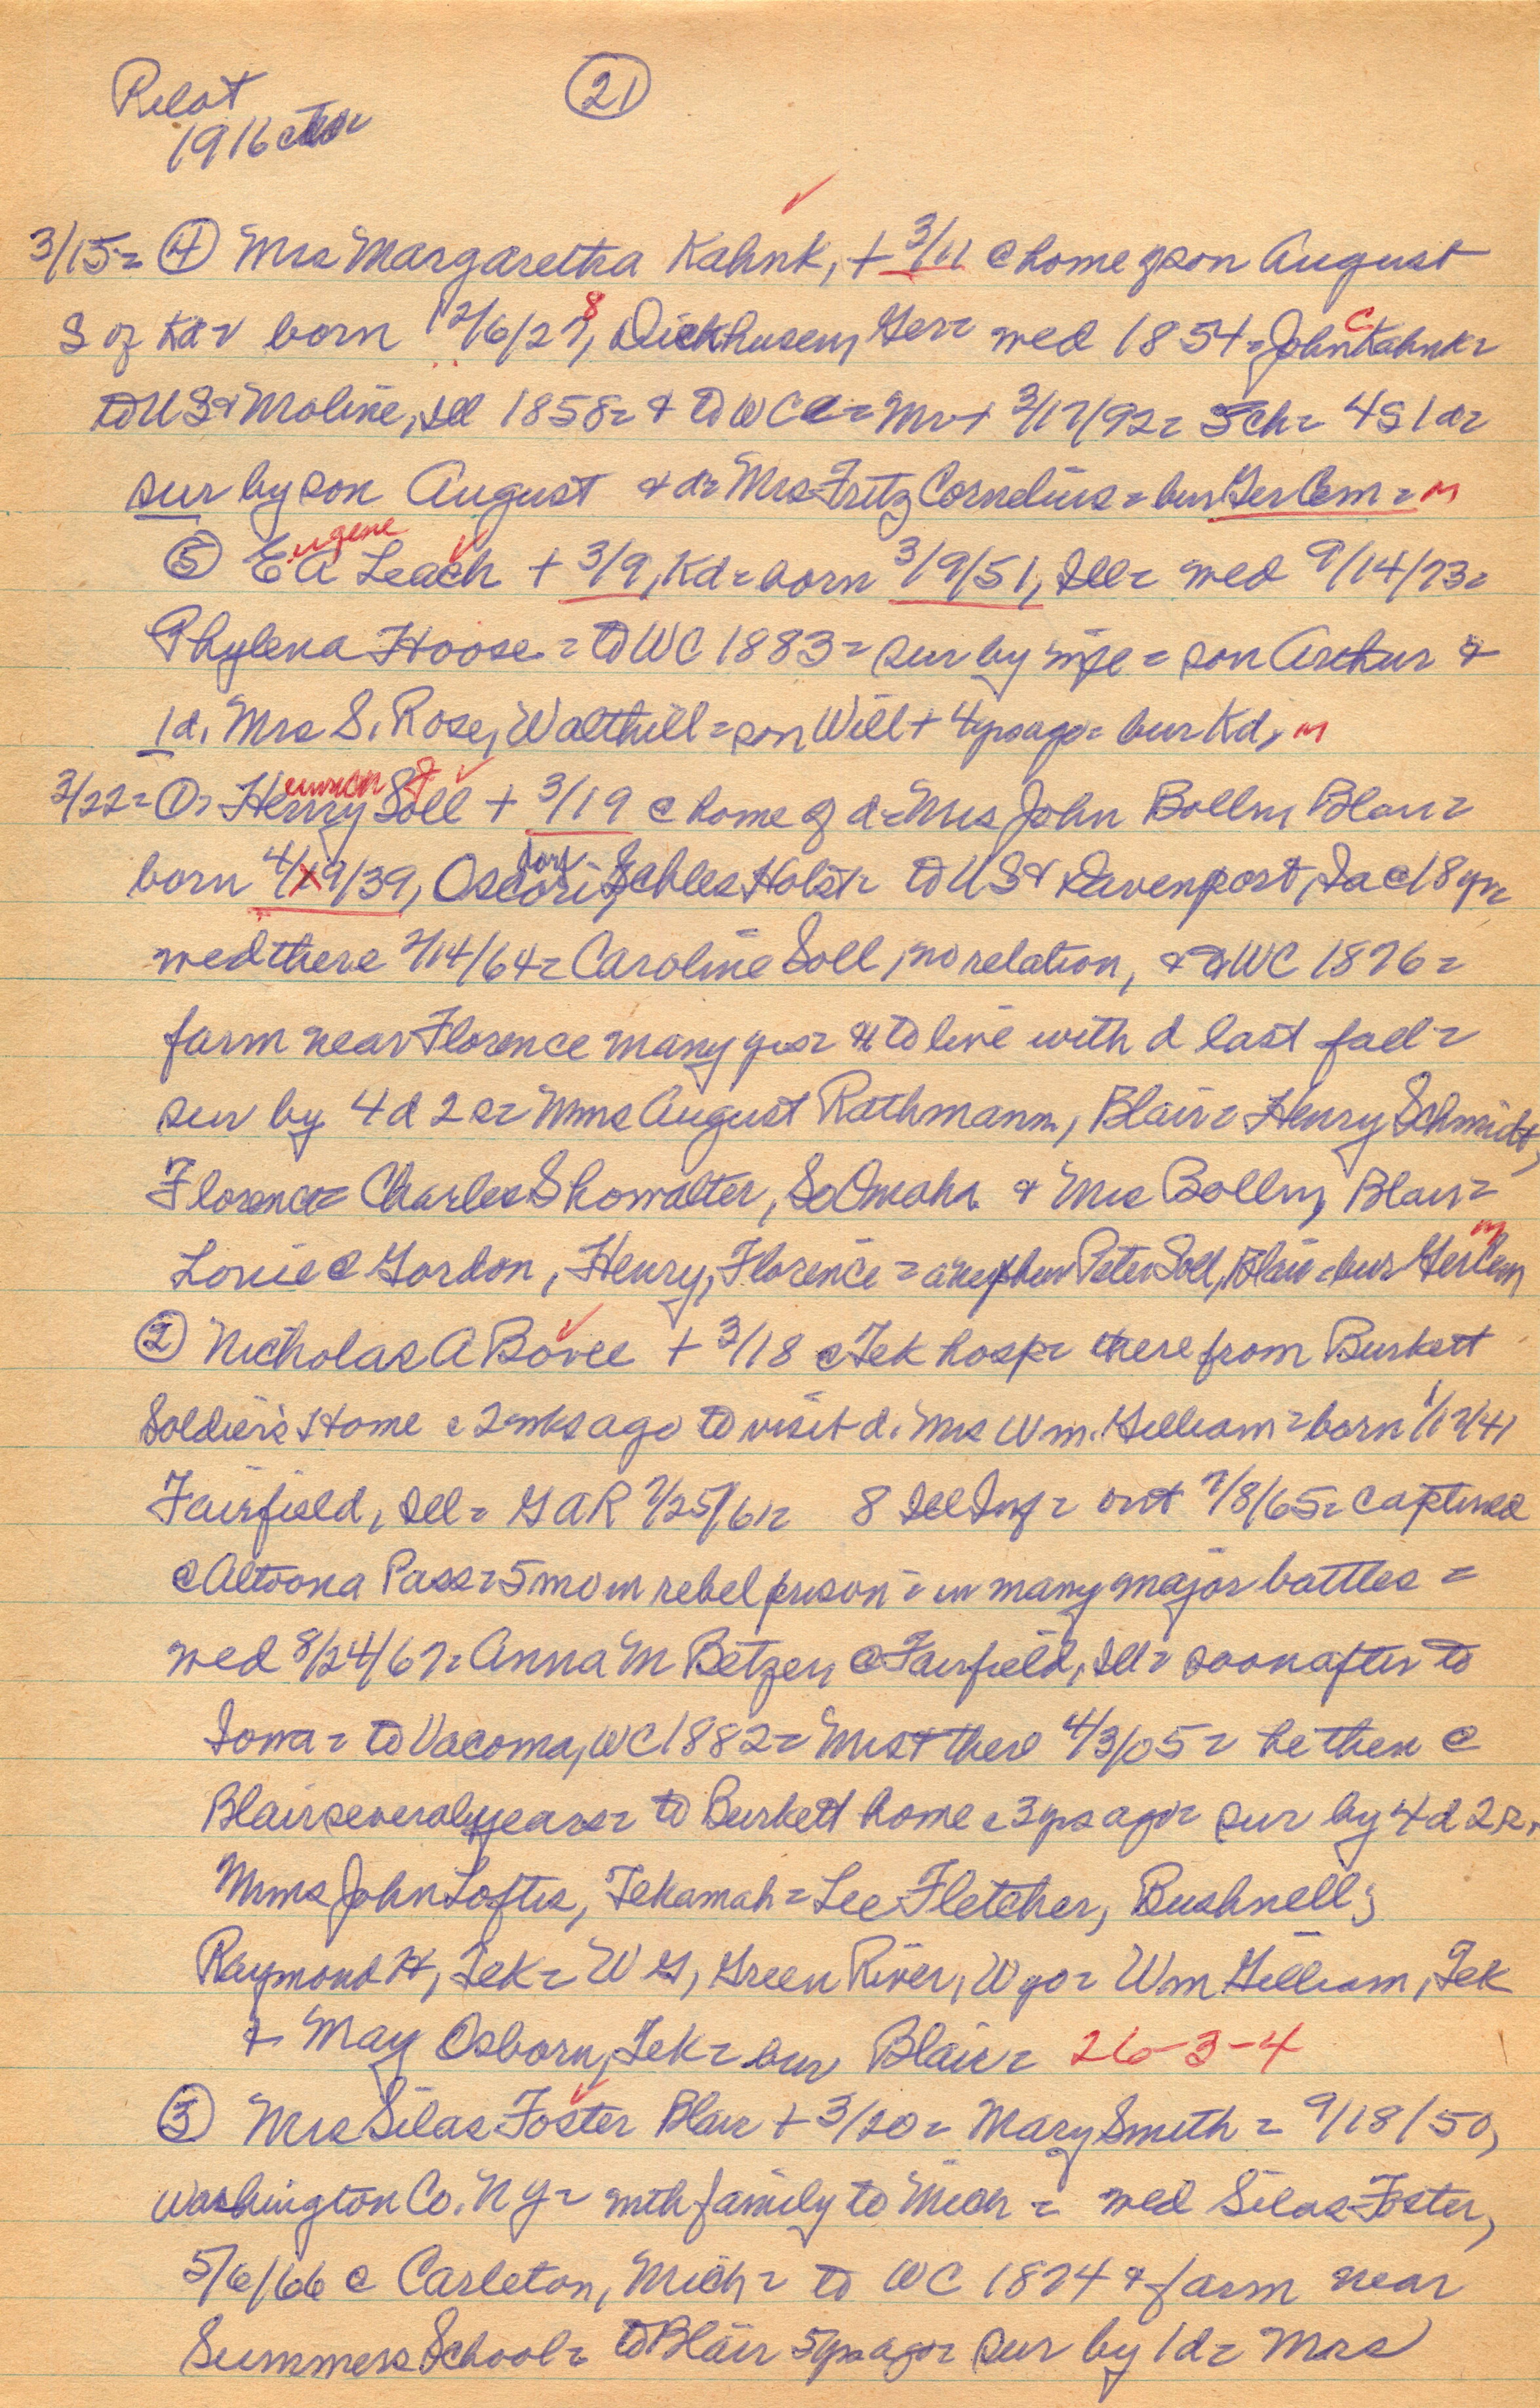 Pilot
(21)
1916
3/15= (4) Mrs Margaretha Kahnk, + 3/11 @ home of son August
S of Kd = born 12/6/27, 8 Dickhusen, Ger = wed 1854 = John C Kahnk =
to US & Moline, Ill 1858 = & to WC = Mr + 3/17/92 = 5 ch = 4 S 1 d =
sur by son August & d = Mrs Fritz Cornelius = bur Ger Cem = m
(5) E ugene A Leach + 3/9, Kd = born 3/9/51, Ill = wed 9/14/73 =
Phylena Hoose = to WC 1883 = sur by wife = son Arthur &
1 d. Mrs S. Rose, Walthill = son Will + 4 yrs ago = bur Kd, m
3/22 = (1) Henry Soll + 3/19 @ home of d = Mrs John Bolln, Blair =
born 4/19/39, dorf, Schles Holst = to US & Davenport, Ia @ 18 yr =
wed there 2/14/64 = Caroline Soll, no relation, & to WC 1876 =
farm near Florence many yrs = to live with d last fall =
sur by 4 d 2 s = Mmes August Rathmann, Blair = Henry Schmidt,
Florence = Charles Showalter, So Omaha & Mrs Bolln, Blair =
Louie @ Gordon, Henry, Florence = a nephew Peter Soll, Blair = bur Ger Cem m
(2) Nicholas A Bovee + 3/18 @ Tek hosp = there from Burkett
Soldier's Home c 2 wks ago to visit d. Mrs Wm. Gilliam = born 1/17/41
Fairfield, Ill = GAR 7/25/61 = 8 Ill Inf = out 7/8/65 = captured
@ Altoona Pass = 5 mo in rebel prison = in many major battles =
wed 8/24/67 = Anna M Betzer, @ Fairfield, Ill = soon after to
Iowa = to Vacoma, WC 1882 = Mrs + there 4/3/05 = he then @
Blair several years = to Burkett home c 3 yrs ago = sur by 4 d 2 s.
Mmes John Loftis, Tekamah = Lee Fletcher, Bushnell;
Raymond H, Tek = W G, Green River, Wyo = Wm Gilliam, Tek
& May Osborn, Tek = bur Blair = 26-3-4
(3) Mrs Silas Foster Blair + 3/20 = Mary Smith = 9/18/50,
Washington Co. N Y = with family to Mich = wed Silas Foster,
5/6/66 @ Carleton, Mich = to WC 1874 & farm near
Summers School = to Blair 5 yrs ago = sur by 1 d = Mrs